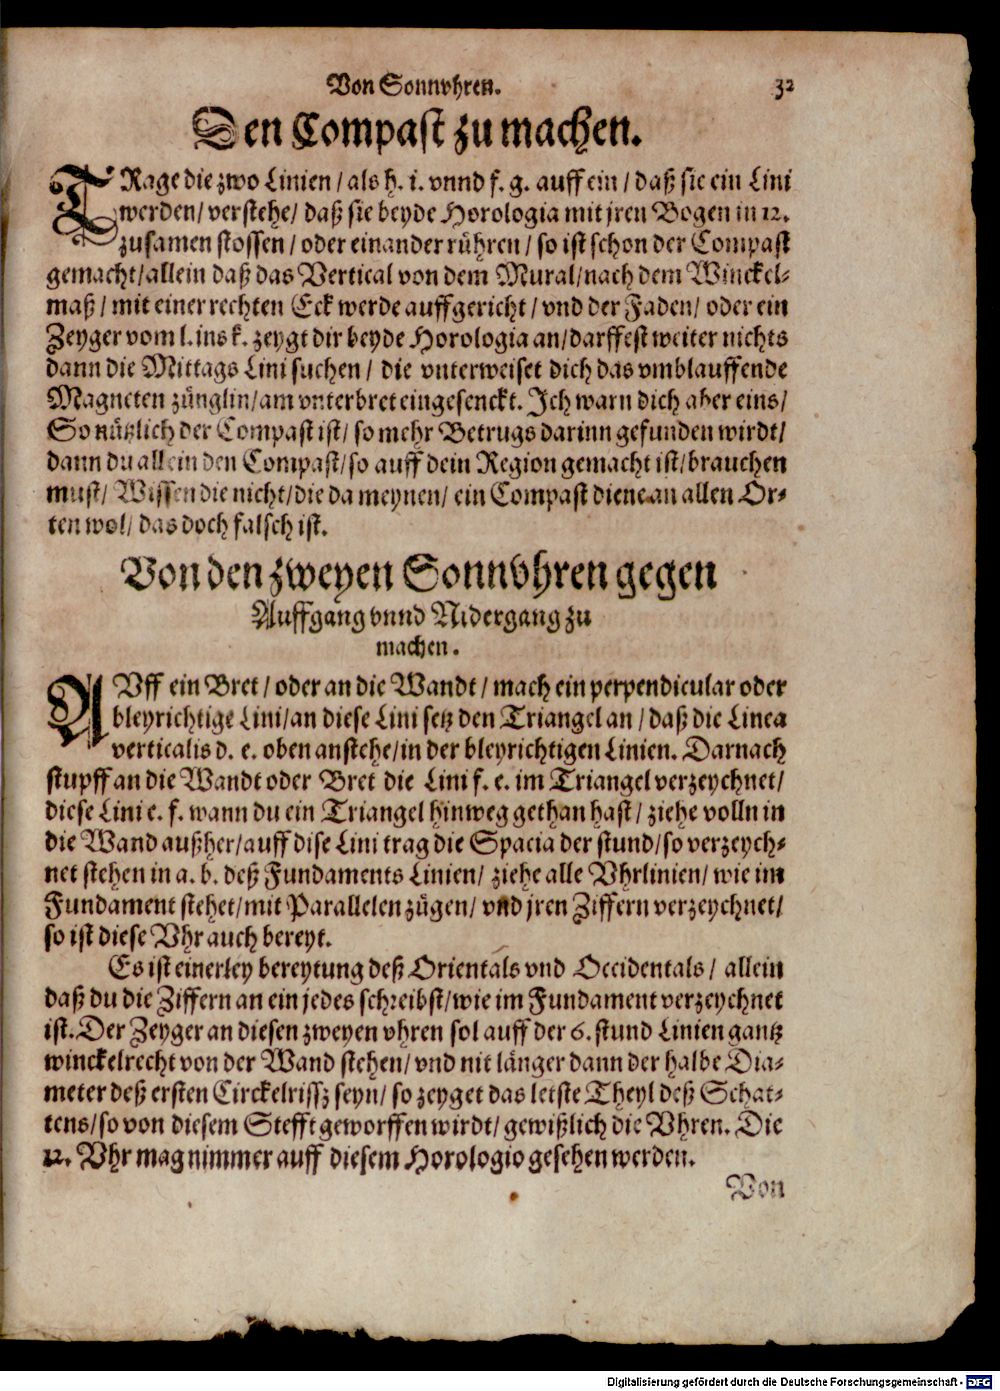 Von Sonnvhren. 32
Den Compast zu machen.
TRage die zwo Linien / als h. i. vnnd f. g. auff ein / daß sie ein Lini
werden / verstehe / daß sie beyde Horologia mit jren Bogen in 12.
zusamen stossen / oder einander rühren / so ist schon der Compast
gemacht / allein daß das Vertical von dem Mural / nach dem Winckel-
maß / mit einer rechten Eck werde auffgericht / vnd der Faden / oder ein
Zeyger vom l. ins k. zeygt dir beyde Horologia an / darffest weiter nichts
dann die Mittags Lini suchen / die vnterweiset dich das vmblauffende
Magneten zünglin / am vnterbret eingesenckt. Ich warn dich aber eins /
So nützlich der Compast ist / so mehr Betrugs darinn gefunden wirdt /
dann du allein den Compast / so auff dein Region gemacht ist / brauchen
must / Wissen die nicht / die da meynen / ein Compast diene an allen Or-
ten wol / das doch falsch ist.
Von den zweyen Sonnvhren gegen
Auffgang vnnd Nidergang zu
machen.
AVff ein Bret / oder an die Wandt / mach ein perpendicular oder
bleyrichtige Lini / an diese Lini setz den Triangel an / daß die Linea
verticalis d. e. oben anstehe / in der bleyrichtigen Linien. Darnach
stupff an die Wandt oder Bret die Lini f. e. im Triangel verzeychnet /
diese Lini e. f. wann du ein Triangel hinweg gethan hast / ziehe volln in
die Wand außher / auff dise Lini trag die Spacia der stund / so verzeych-
net stehen in a. b. deß Fundaments Linien / ziehe alle Vhrlinien / wie im
Fundament stehet / mit Parallelen zügen / vnd jren Ziffern verzeychnet /
so ist diese Vhr auch bereyt.
Es ist einerley bereytung deß Orientals vnd Occidentals / allein
daß du die Ziffern an ein jedes schreibst / wie im Fundament verzeychnet
ist. Der Zeyger an diesen zweyen vhren sol auff der 6. stund Linien gantz
winckelrecht von der Wand stehen / vnd nit länger dann der halbe Dia-
meter deß ersten Circkelrissz seyn / so zeyget das letste Theyl deß Schat-
tens / so von diesem Stefft geworffen wirdt / gewißlich die Vhren. Die
12. Vhr mag nimmer auff diesem Horologio gesehen werden.
Von
Digitalisierung gefördert durch die Deutsche Forschungsgemeinschaft - DFG